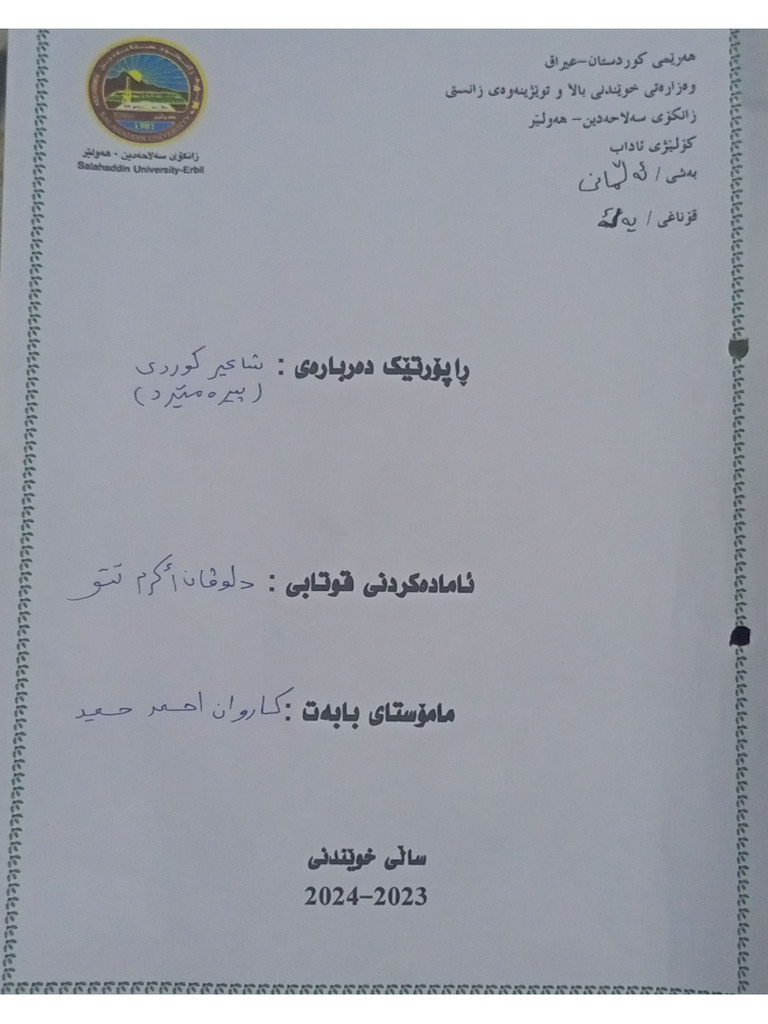 هەرێمی کوردستان-عیراق
وەزارەتی خوێندنی بالا و توێژینەوەی زانستی
زانکۆی سەلاحەدین- هەولێر
کۆلێژی ئاداب
بەشی / ئەڵمانی
قۆناغی / یەک
1981
زانکۆی سەلاحەدین - هەولێر
Salahaddin University-Erbil
ڕاپۆرتێک دەربارەی : شاعیر کوردی
(پیرەمێرد)
ئامادەکردنی قوتابی : دلوڤان أکرم تتو
مامۆستای بابەت : کاروان احمد حمید
ساڵی خوێندنی
2024–2023